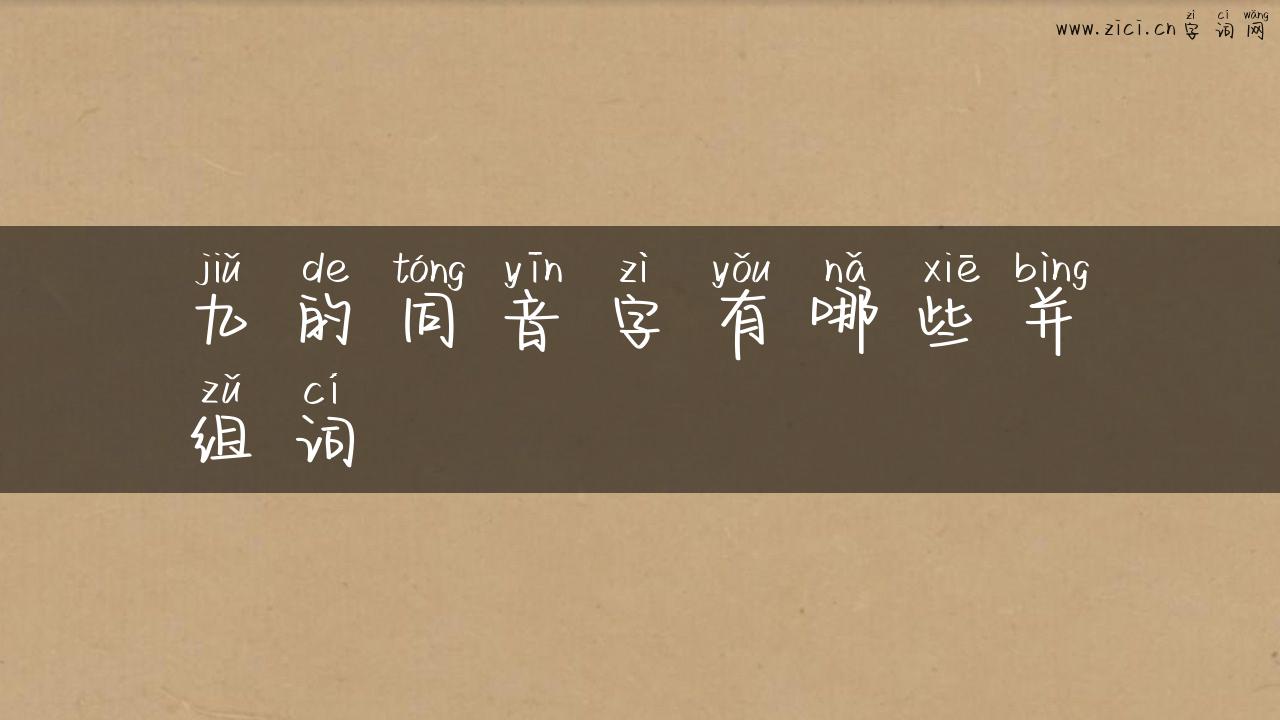 zì cí wǎng
www.zici.cn 字 词 网
jiǔ de tóng yīn zì yǒu nǎ xiē bìng
九 的 同 音 字 有 哪 些 并
zǔ cí
组 词